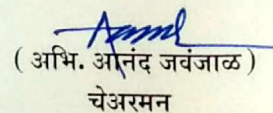 ( अभि. आनंद जवंजाळ )
चेअरमन